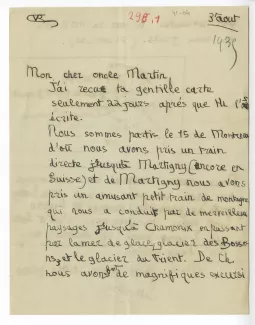 298.1
3 août
1935
Mon cher oncle Martin,
J'ai recut ta gentille carte
seulement 22 jours aprés que tu l'as
écrite.
Nous sommes partis le 15 de Montreux
d'où nous avons pris un train
directe jusqu'à Martigny (encore en
Suisse) et de Martigny nous avons
pris un amusant petit train de montagne
qui nous a conduit par de merveilleux
paysages jusqu'à Chamonix en passant
par la mer de glace, glacier des Bosso
ns, et le glacier du Trient. De Ch.
nous avons fait de magnifiques excursi